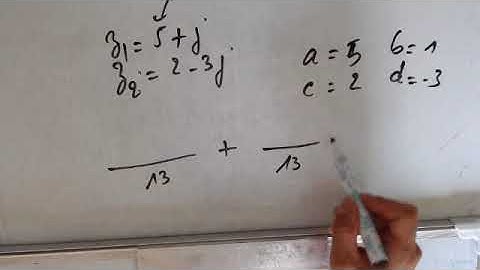 z₁ = 5 + j
z₂ = 2 - 3j
a = 5 b = 1
c = 2 d = -3
— + —
13 13